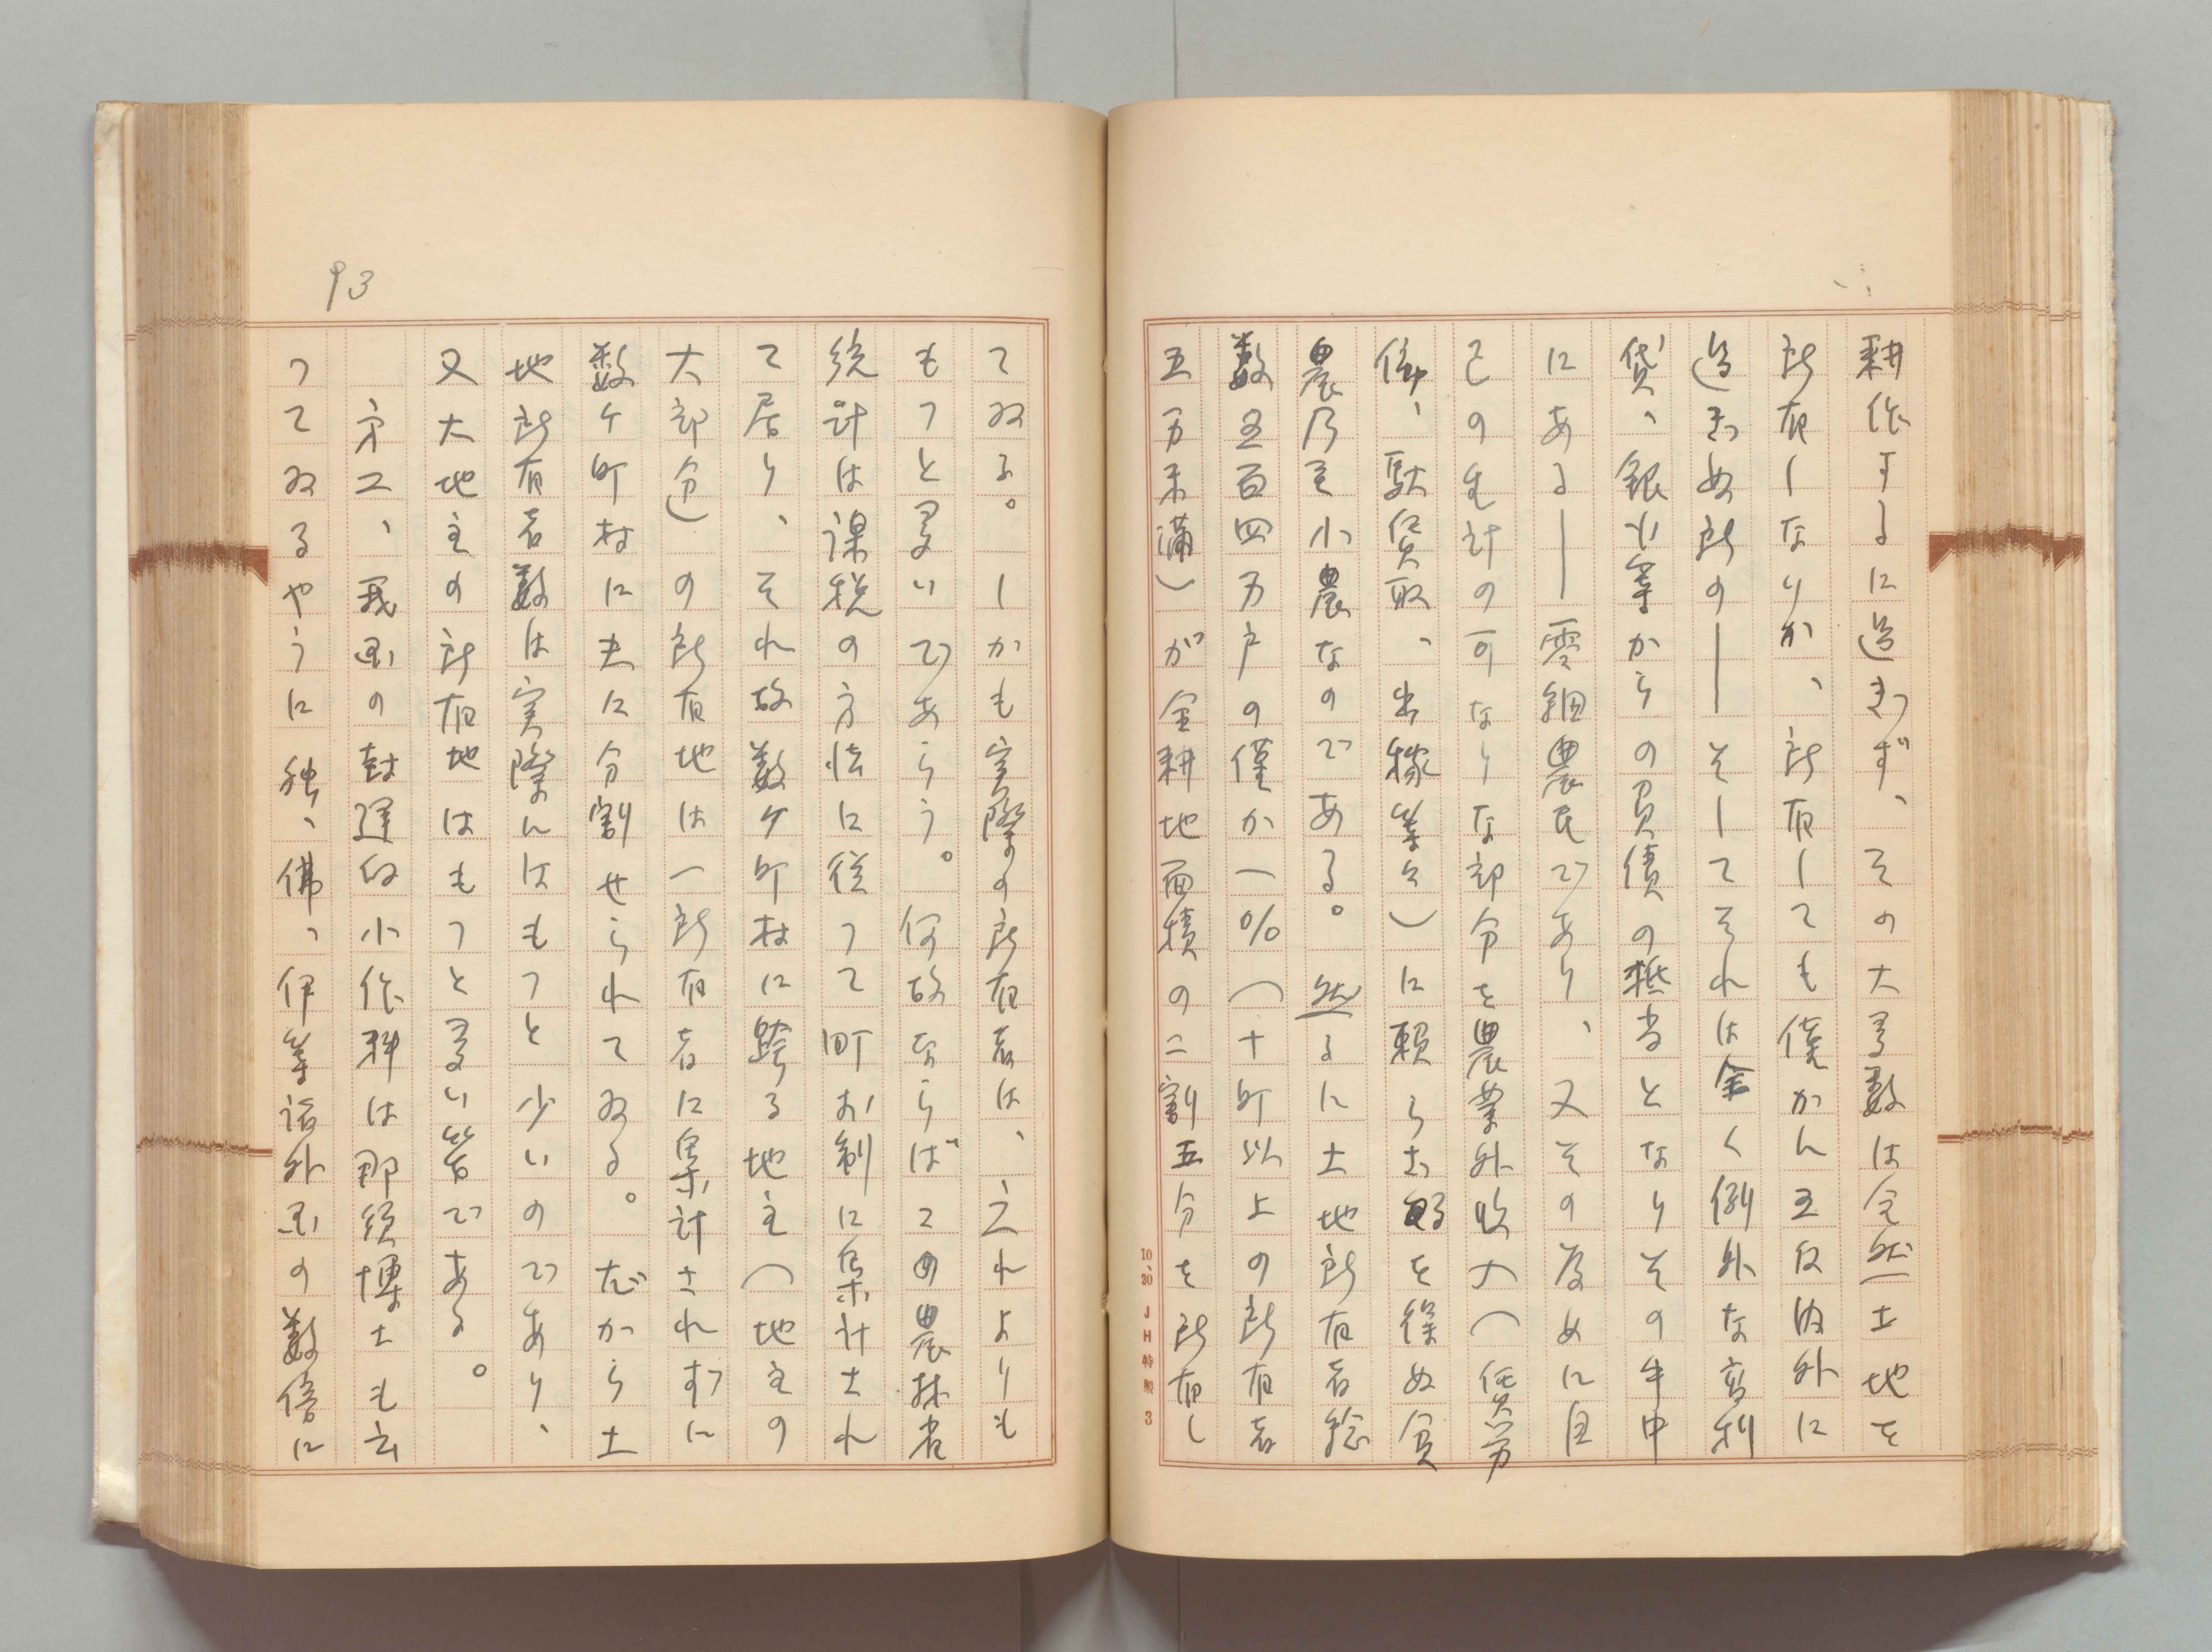 耕作するに過ぎず、その大多数は全然土地を
所有しないか、所有しても僅かに五反内外に
過ぎぬ所の——そしてそれは全く例外な高利
貸、銀行等からの負債の抵当となりその手中
にある——零細農民であり、又その為めに自
己の生計の可なりな部分を農業外収入(賃労
働、駄賃取、出稼等々)に頼らざるを得ぬ貧
農乃至小農なのである。然るに土地所有者総
数五百四万戸の僅か一%(十町以上の所有者
五万未満)が全耕地面積の二割五分を所有し
93
てゐる。しかも実際の所有者は、之れよりも
もつと多いであらう。何故ならばこの農林省
統計は課税の方法に従つて町村別に集計され
て居り、それ故数ケ町村に跨る地主(地主の
大部分)の所有地は一所有者に累計されずに
数ケ町村に夫に分割せられてゐる。だから土
地所有者数は実際にはもつと少いのであり、
又大地主の所有地はもつと多い筈である。
第二、我国の封建的小作料は那須博士も云
つてゐるやうに独、佛、伊等諸外国の数倍に
10.20 JH特製 3